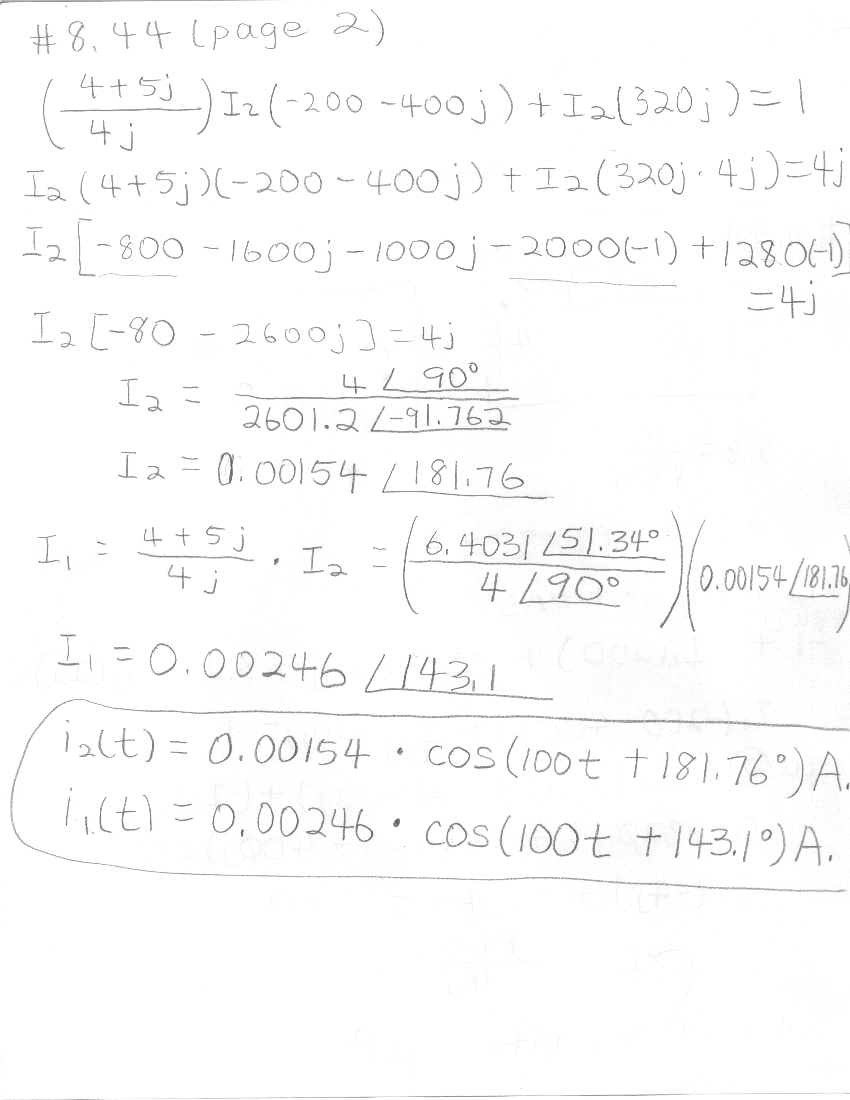 #8.44 (page 2)
((4+5j)/(4j)) I2(-200 -400j) + I2(320j) = 1
I2 (4+5j)(-200 -400j) + I2(320j · 4j) = 4j
I2 [-800 -1600j -1000j -2000(-1) +1280(-1)]
= 4j
I2 [-80 - 2600j] = 4j
I2 = (4 ∠90°)/(2601.2 ∠-91.762)
I2 = 0.00154 ∠181.76
I1 = (4+5j)/(4j) · I2 = ((6.4031 ∠51.34°)/(4 ∠90°))(0.00154 ∠181.76)
I1 = 0.00246 ∠143.1
i2(t) = 0.00154 · cos(100t +181.76°) A.
i1(t) = 0.00246 · cos(100t +143.1°) A.